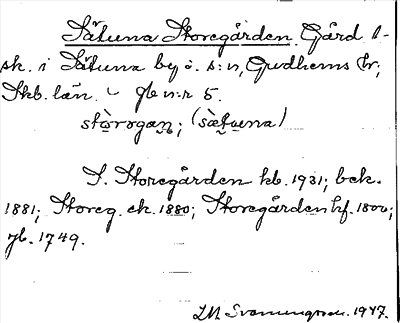 Sätuna Storegården. Gård
sk. i Sätuna by o. s:n, Gudhems hr;
Skb. län. – Jb n:r 5.
stòrogan; (sætuena)
S. Storegården kb. 1931; bek.
1881; Storeg. ek. 1880; Storegården hf. 1800;
jb. 1749.
1947.